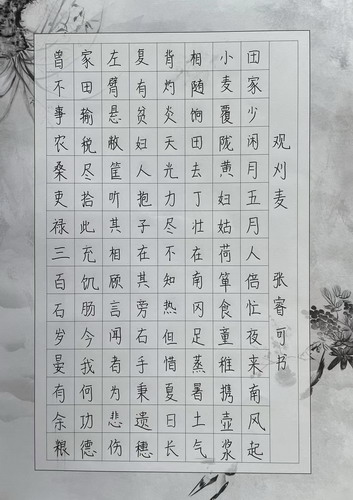 观刈麦 张睿可书
田家少闲月五月人倍忙夜来南风起
小麦覆陇黄妇姑荷箪食童稚携壶浆
相随饷田去丁壮在南冈足蒸暑土气
背灼炎天光力尽不知热但惜夏日长
复有贫妇人抱子在其旁右手秉遗穗
左臂悬敝筐听其相顾言闻者为悲伤
家田输税尽拾此充饥肠今我何功德
曾不事农桑吏禄三百石岁晏有余粮